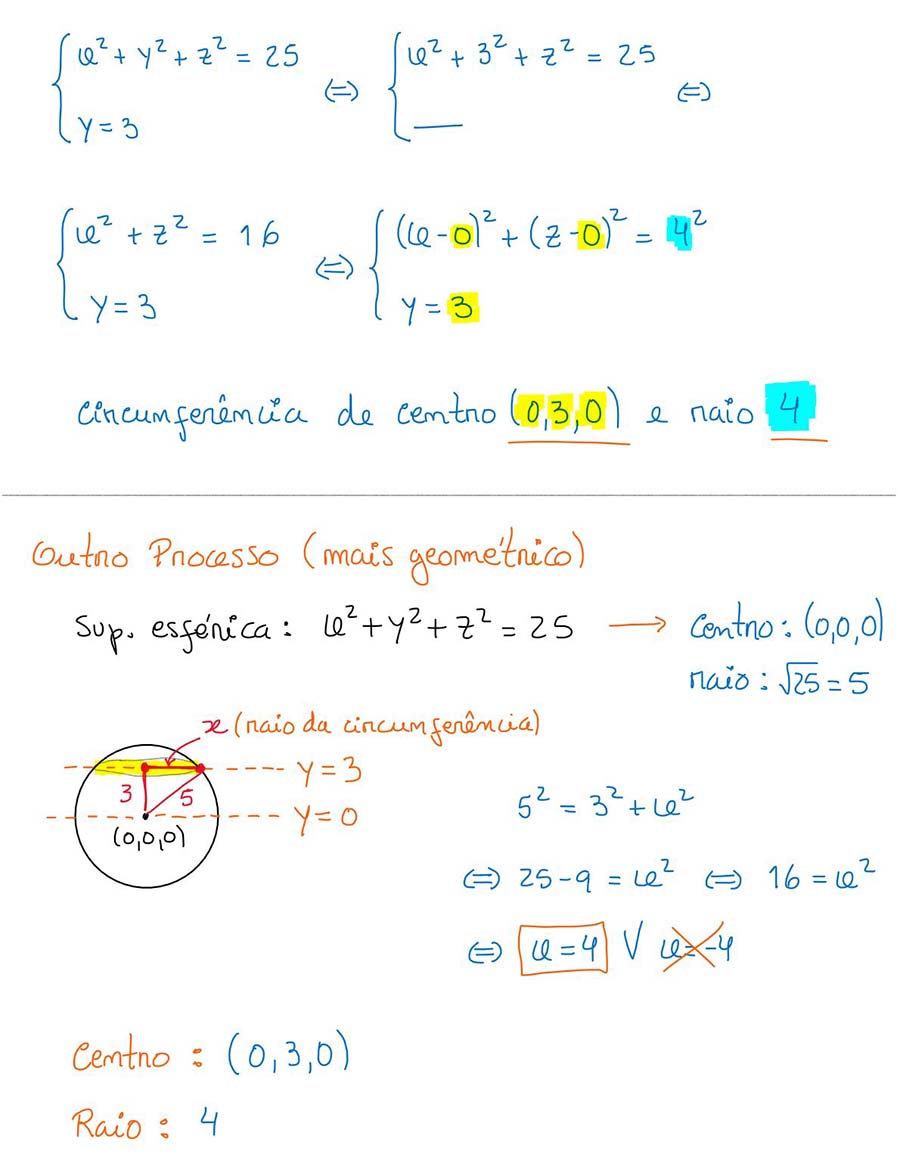 { x² + y² + z² = 25 ⇔ { x² + 3² + z² = 25 ⇔
y = 3 ——
{ x² + z² = 16 ⇔ { (x-0)² + (z-0)² = 4²
y = 3 y = 3
circunferência de centro (0,3,0) e raio 4
Outro Processo (mais geométrico)
Sup. esférica: x² + y² + z² = 25 → Centro: (0,0,0)
raio: √25 = 5
x (raio da circunferência)
y = 3
3 5
y = 0
(0,0,0)
5² = 3² + x²
⇔ 25 - 9 = x² ⇔ 16 = x²
⇔ x = 4 ∨ x = -4
Centro: (0,3,0)
Raio: 4